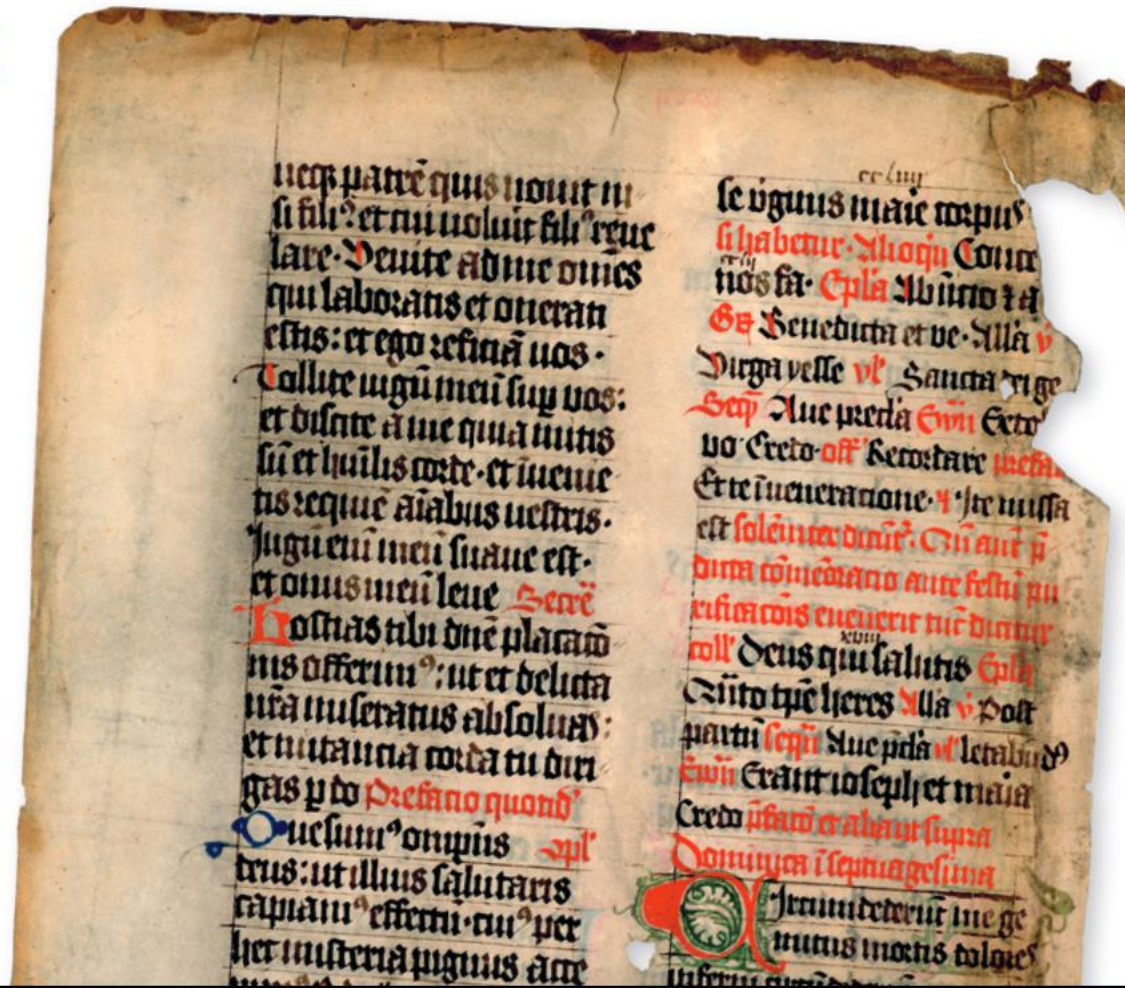 neqꝫ patrē quis nouit ni
si filiꝰ et cui uoluit filiꝰ reue
lare· Venite ad me om̄es
qui laboratis et onerati
estis: et ego reficiā uos·
Tollite iugū meū suꝑ vos:
et discite a me quia mitis
sū et hūilis corde· et īuenie
tis requiē aīabus uestris·
Jugū enī meū suaue est·
et onus meū leue Secrē
Hostias tibi dn̄e placacō
nis offerimꝰ: ut et delicta
nr̄a miseratus absoluas:
et nutancia corda tu diri
gas ꝑ do Prefacio quotid'
Quesumꝰ omp̄ns 9pl'
deus: ut illius salutaris
capiamꝰ effectū· cuiꝰ per
hec misteria pignus acce
ccliiij
se v̓ginis maīe corpus
si habetur· Alioqn̄ Conce
cclij
nos fa· Epl̄a Ab īicio ⁊ a
Gᷓ Benedicta et ve· All̄a v̓
Virga yesse vl̓ Sancta dei ge
Seqn̄ Aue precl̄a Ewn̄ Exto
vo Credo· off' Recordare prefa
Et te ī ueneracione· ⁊ Ite missa
est solēniter dicitr̄· Cū aūt p̄
dicta cōmēoracio ante festū pu
rificacōis euenerit tūc dicitur
xviij
coll' Deus qui salutis Epl̄a
Quāto tp̄e heres All̄a v̓ Post
partū seqn̄ Aue p̄cl̄a vl̓ letabūdꝰ
Ewn̄ Erant ioseph et maīa
Credo p̄facō et alia ut supra
Dominica ī septuagesima
Circumdederūt me ge
mitus mortis dolores
inferni